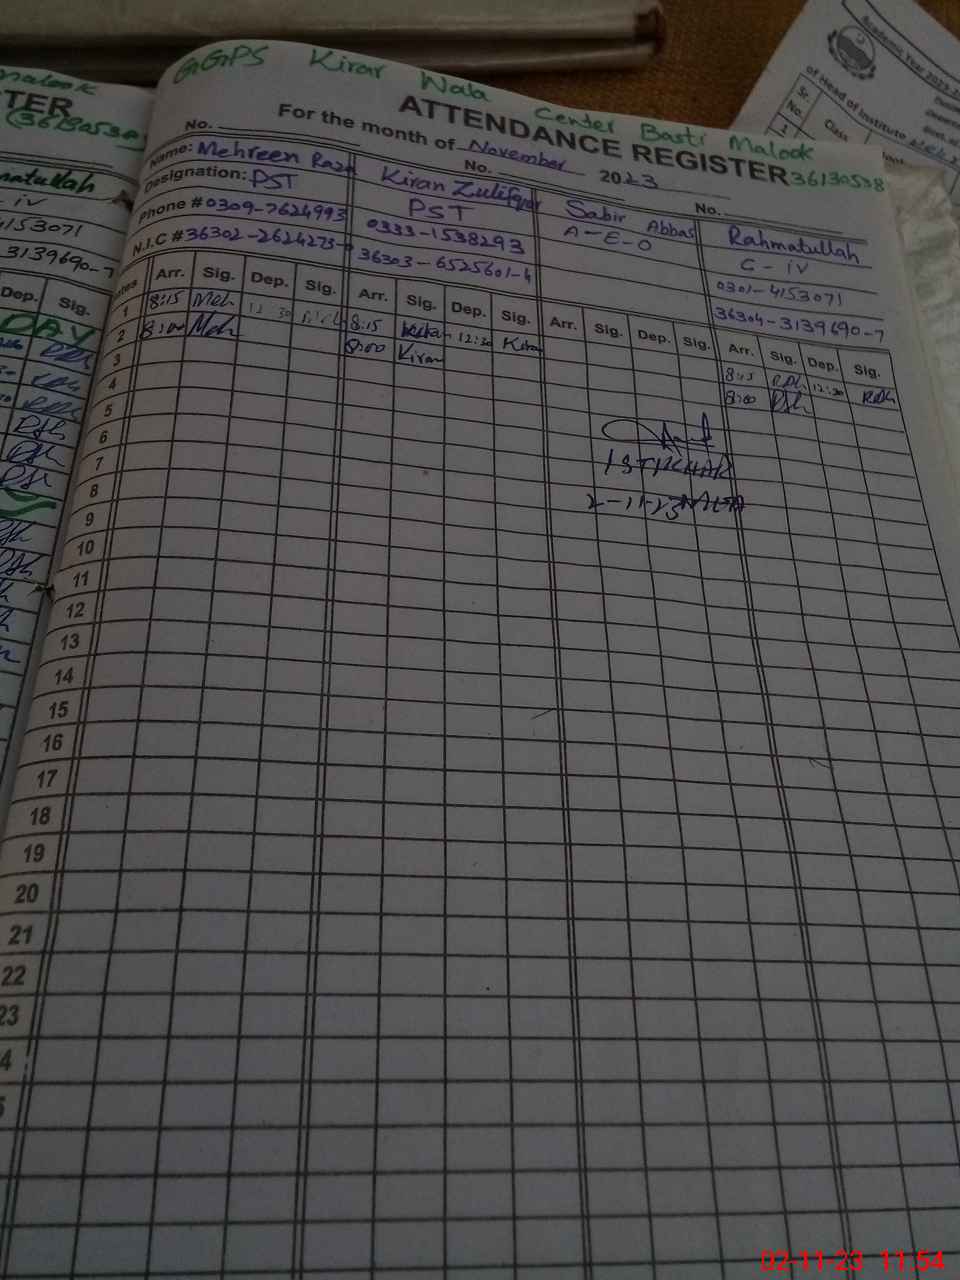 GGPS Kirar Wala Center Basti Malook
ATTENDANCE REGISTER 36130538
For the month of November 2023
No. No. No.
Name: Mehreen Raza Kiran Zulifqar Sabir Abbas Rahmatullah
Designation: PST PST A-E-O C-iv
Phone # 0309-7624993 0333-1538293 0301-4153071
N.I.C # 36302-2624273- 36303-6525601-4 36304-3139690-7
Arr. Sig. Dep. Sig. Arr. Sig. Dep. Sig. Arr. Sig. Dep. Sig. Arr. Sig. Dep. Sig.
1 8:15 Meh 12:30 Meh 8:15 Kiran 12:30 Kiran 8:15 12:30
2 8:00 Meh 8:00 Kiran 8:00
3
4
5
6
7
8
2-11-23
9
10
11
12
13
14
15
16
17
18
19
20
21
22
23
4
5
malook
TER
(36130538)
matullah
-iv
4153071
3139690-7
Dep. Sig.
DAY
Academic Year 2023-2
of Head of Institute
Sr. No.
Class
1
02-11-23 11:54